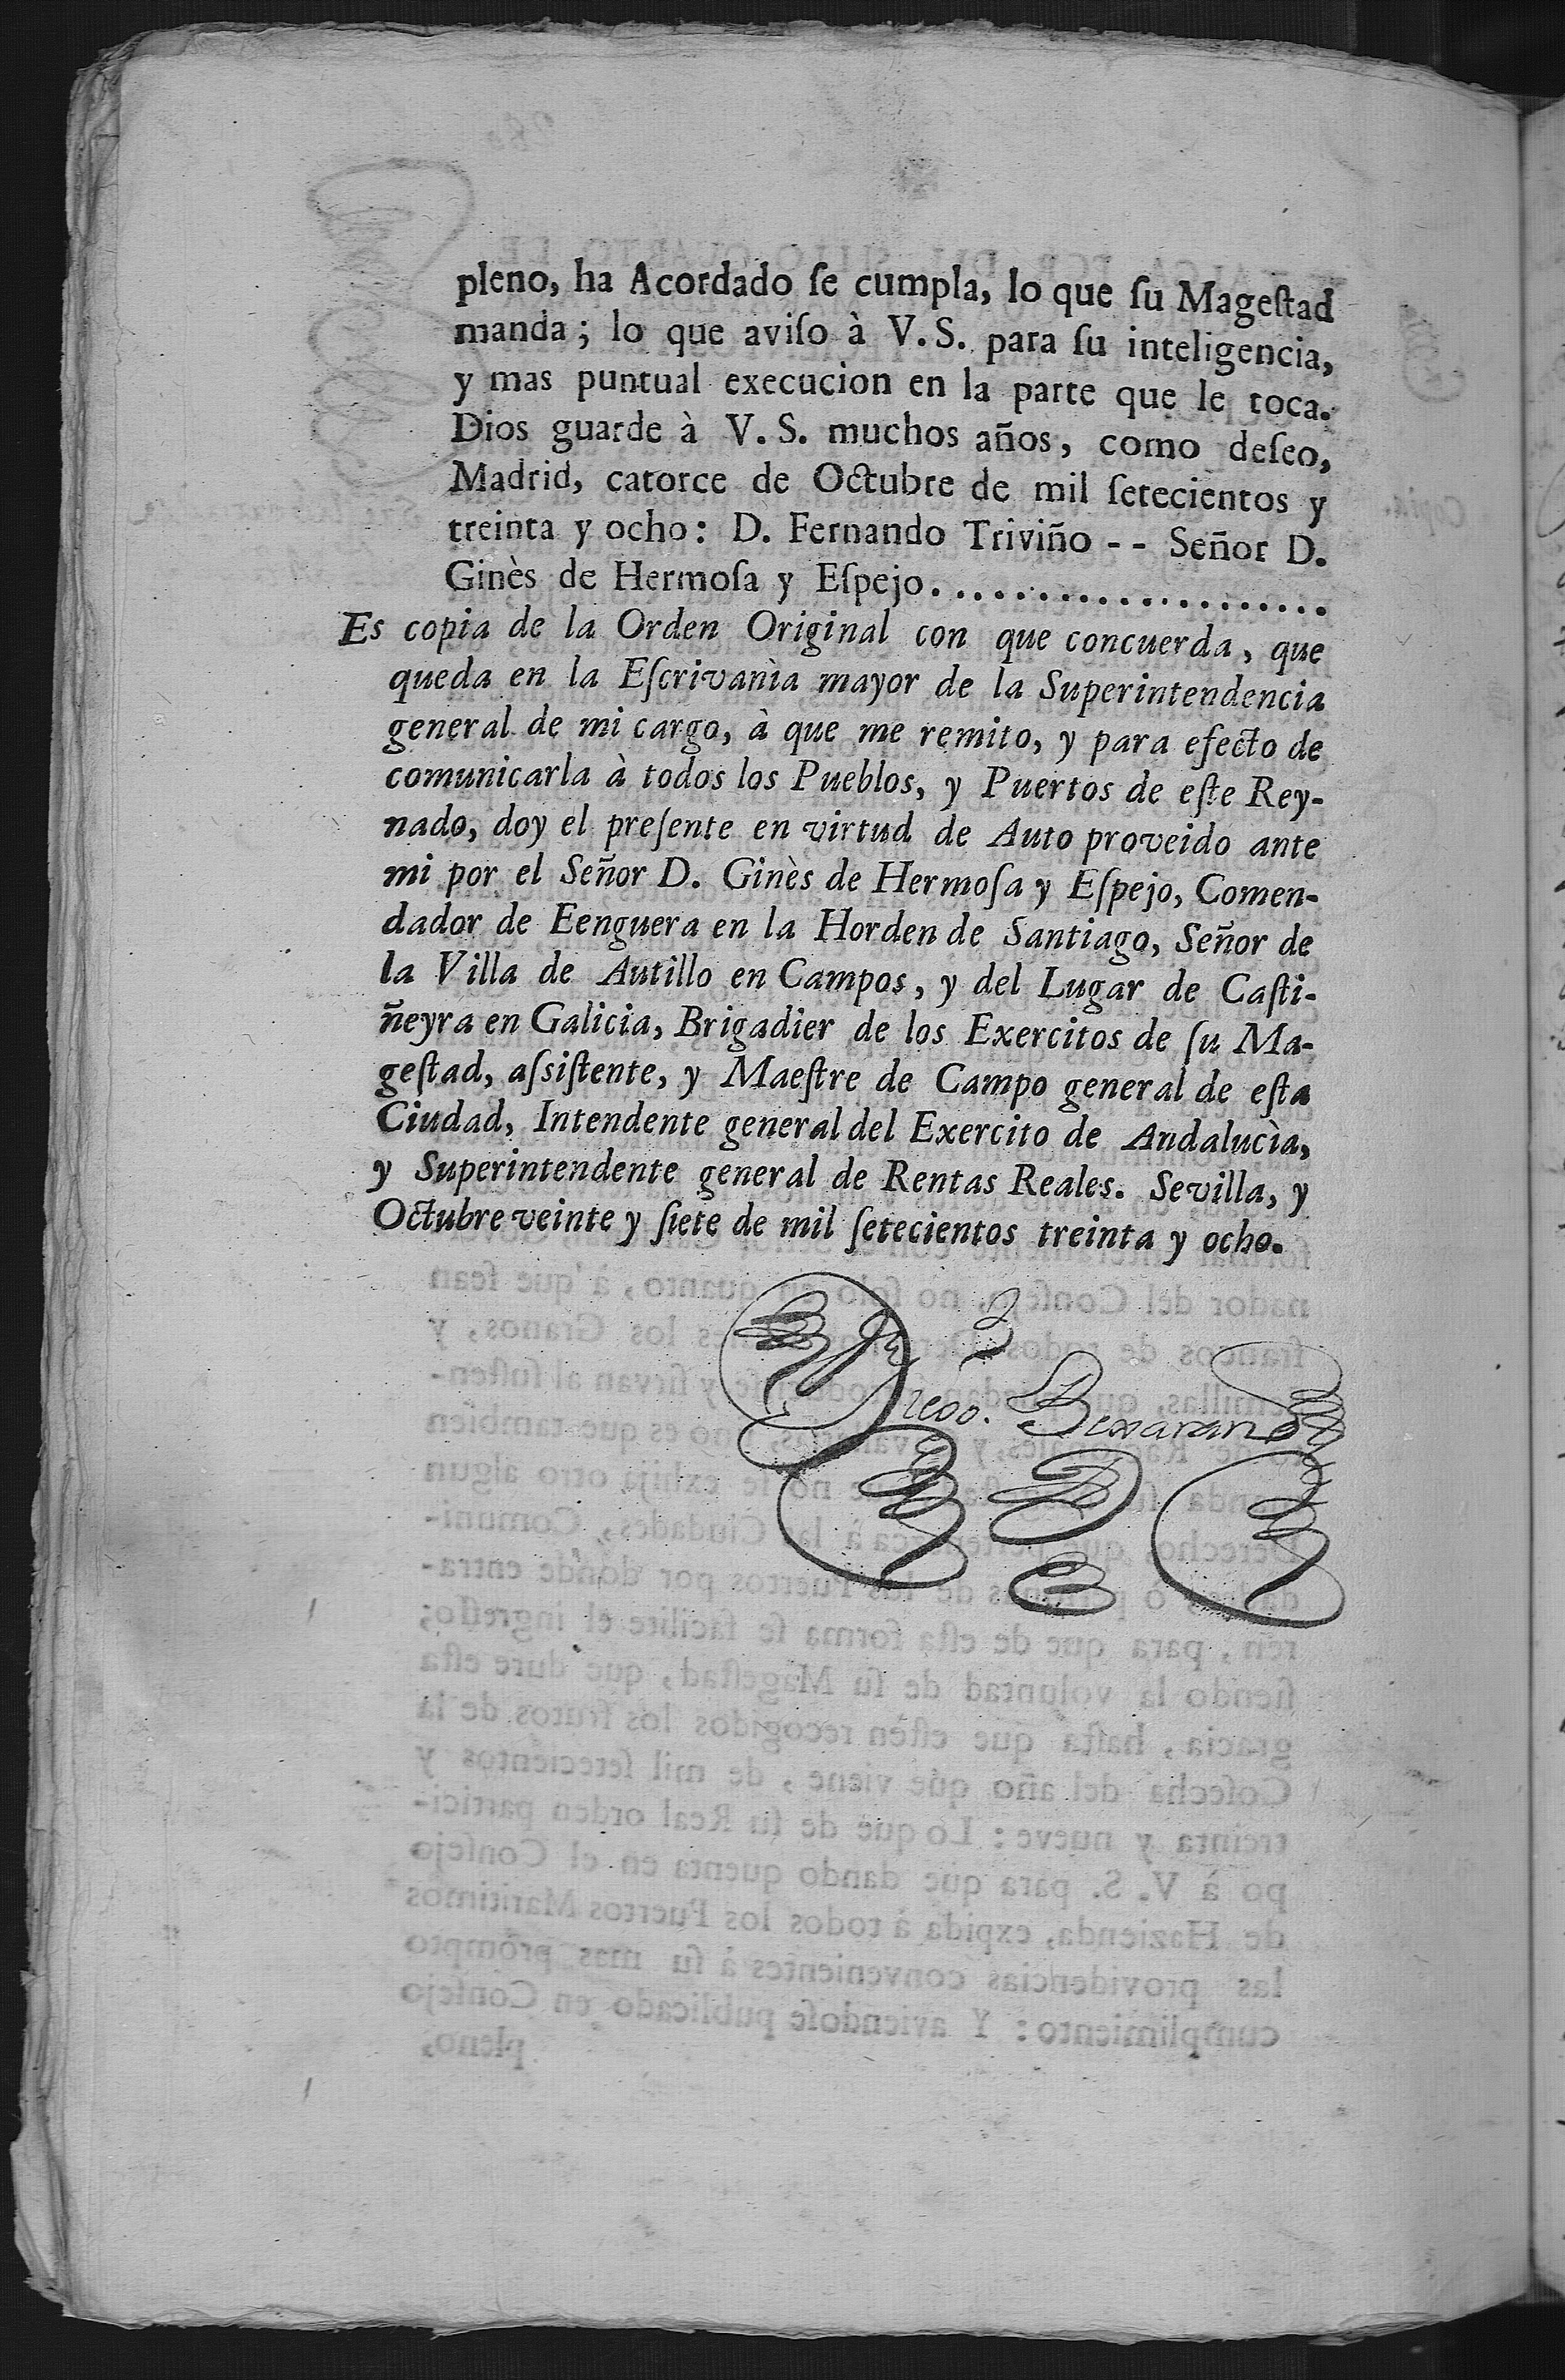 pleno, ha Acordado ſe cumpla, lo que ſu Mageſtad
manda ; lo que aviſo à V. S. para ſu inteligencia,
y mas puntual execucion en la parte que le toca.
Dios guarde à V. S. muchos años, como deſeo,
Madrid, catorce de Octubre de mil ſetecientos y
treinta y ocho: D. Fernando Triviño - - Señor D.
Ginès de Hermoſa y Eſpejo. . . . . . . . . . . . . . . . . . . .
Es copia de la Orden Original con que concuerda, que
queda en la Eſcrivanìa mayor de la Superintendencia
general de mi cargo, à que me remito, y para efecto de
comunicarla à todos los Pueblos, y Puertos de eſte Rey-
nado, doy el preſente en virtud de Auto proveido ante
mi por el Señor D. Ginès de Hermoſa y Eſpejo, Comen-
dador de Eenguera en la Horden de Santiago, Señor de
la Villa de Autillo en Campos, y del Lugar de Caſti-
ñeyra en Galicia, Brigadier de los Exercitos de ſu Ma-
geſtad, aſsiſtente, y Maeſtre de Campo general de eſta
Ciudad, Intendente general del Exercito de Andalucìa,
y Superintendente general de Rentas Reales. Sevilla, y
Octubre veinte y ſiete de mil ſetecientos treinta y ocho.
Bexarano